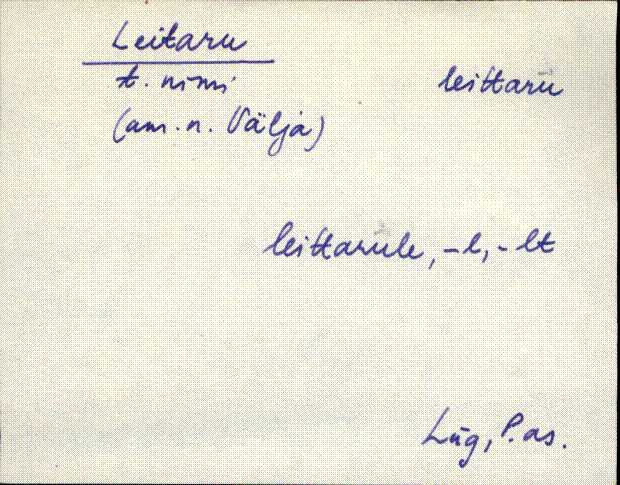 Leitaru
t. nimi
leittaru
(am. n. Välja)
leittarule, -l, -lt
Lüg, P. as.